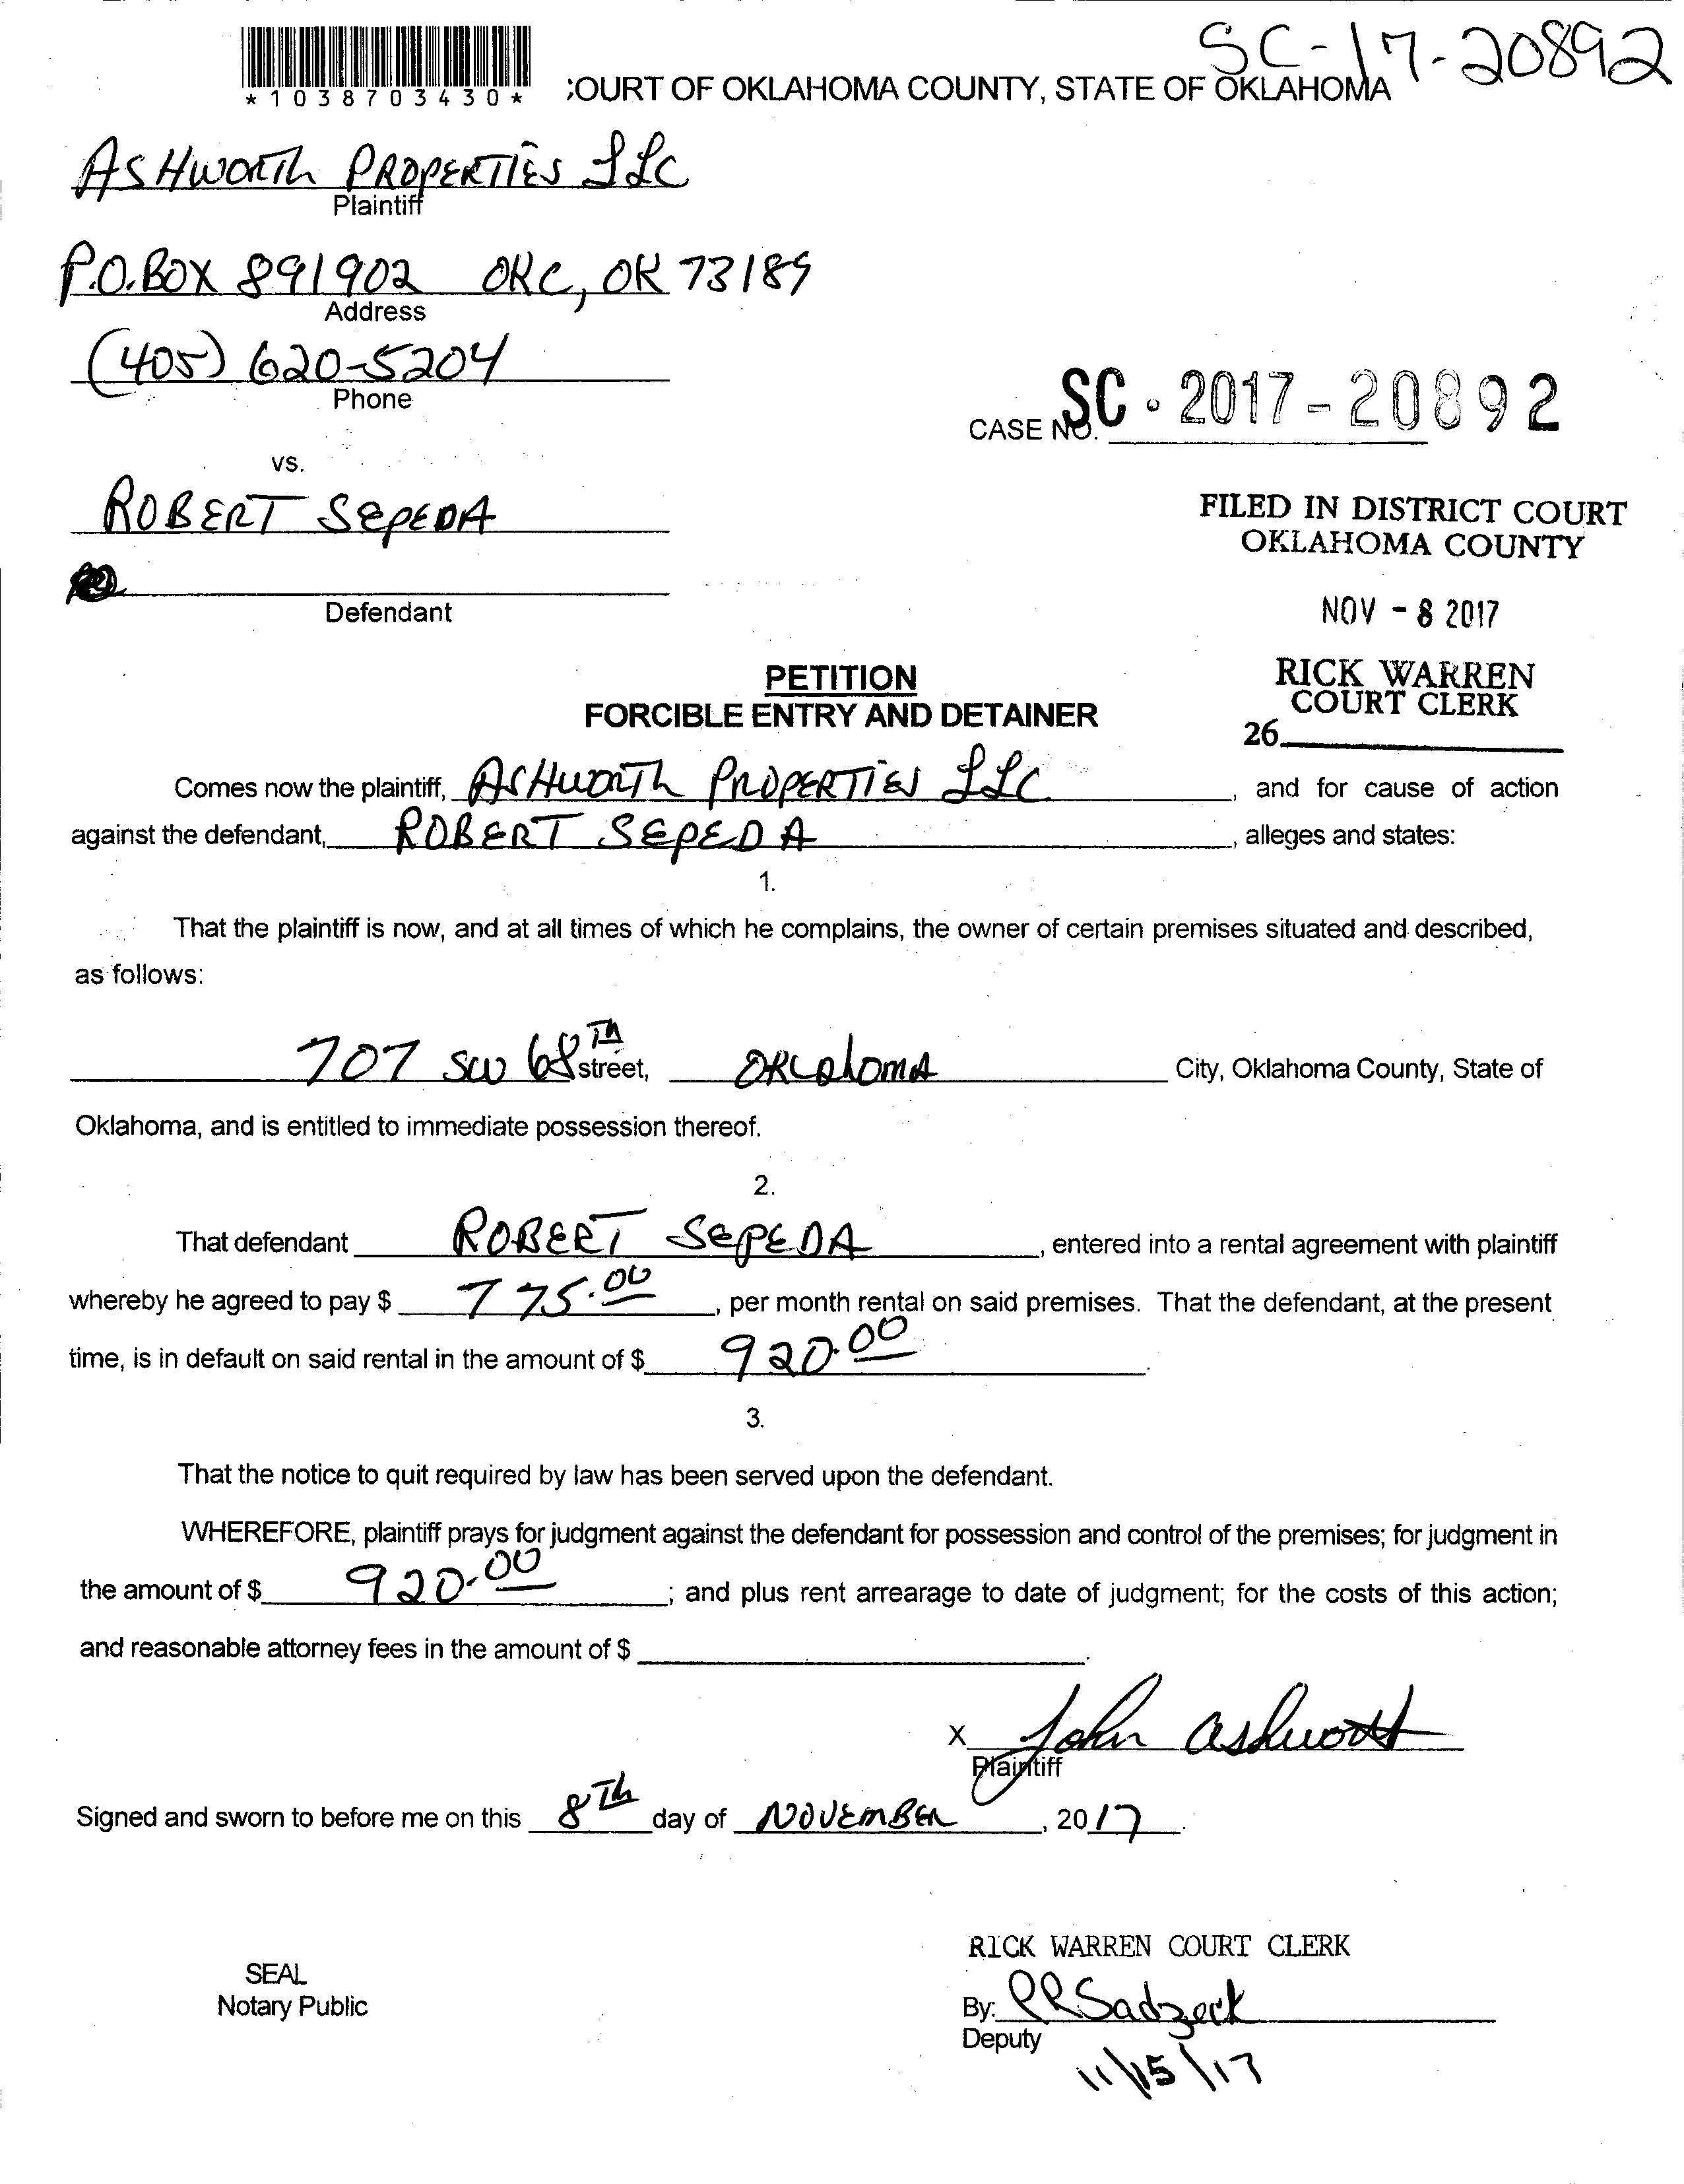 SC-17-20892
*1038703430*
:OURT OF OKLAHOMA COUNTY, STATE OF OKLAHOMA
ASHWORTH PROPERTIES LLC
Plaintiff
P.O. BOX 891902 OKC, OK 73189
Address
(405) 620-5204
Phone
CASE NO. SC - 2017 - 20892
vs.
ROBERT SEPEDA
FILED IN DISTRICT COURT
OKLAHOMA COUNTY
Defendant
NOV - 8 2017
PETITION
FORCIBLE ENTRY AND DETAINER
RICK WARREN
COURT CLERK
26
Comes now the plaintiff, ASHWORTH PROPERTIES LLC, and for cause of action
against the defendant, ROBERT SEPEDA, alleges and states:
1.
That the plaintiff is now, and at all times of which he complains, the owner of certain premises situated and described,
as follows:
707 SW 68TH street, OKLAHOMA City, Oklahoma County, State of
Oklahoma, and is entitled to immediate possession thereof.
2.
That defendant ROBERT SEPEDA, entered into a rental agreement with plaintiff
whereby he agreed to pay $ 775.00, per month rental on said premises. That the defendant, at the present
time, is in default on said rental in the amount of $ 920.00.
3.
That the notice to quit required by law has been served upon the defendant.
WHEREFORE, plaintiff prays for judgment against the defendant for possession and control of the premises; for judgment in
the amount of $ 920.00; and plus rent arrearage to date of judgment; for the costs of this action;
and reasonable attorney fees in the amount of $ .
X John Ashworth
Plaintiff
Signed and sworn to before me on this 8Th day of NOVEMBER, 2017.
RICK WARREN COURT CLERK
SEAL
Notary Public
By: PRSadzeck
Deputy
11/15/17